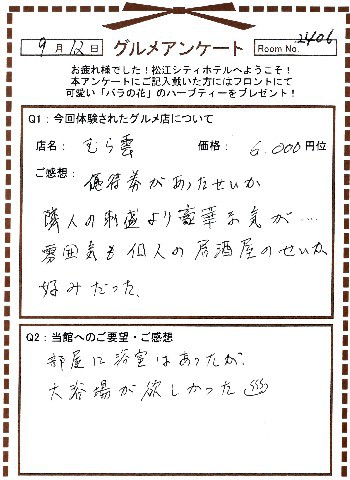 9月12日 グルメアンケート Room No. 2406
お疲れ様でした！松江シティホテルへようこそ！
本アンケートにご記入戴いた方にはフロントにて
可愛い「バラの花」のハーブティーをプレゼント！
Q1：今回体験されたグルメ店について
店名： むら雲 価格： 6.000円位
ご感想： 優待券があったせいか
隣人の刺盛より豪華な気が…
雰囲気も個人の居酒屋のせいか
好みだった、
Q2：当館へのご要望・ご感想
部屋に浴室はあったが、
大浴場が欲しかった♨